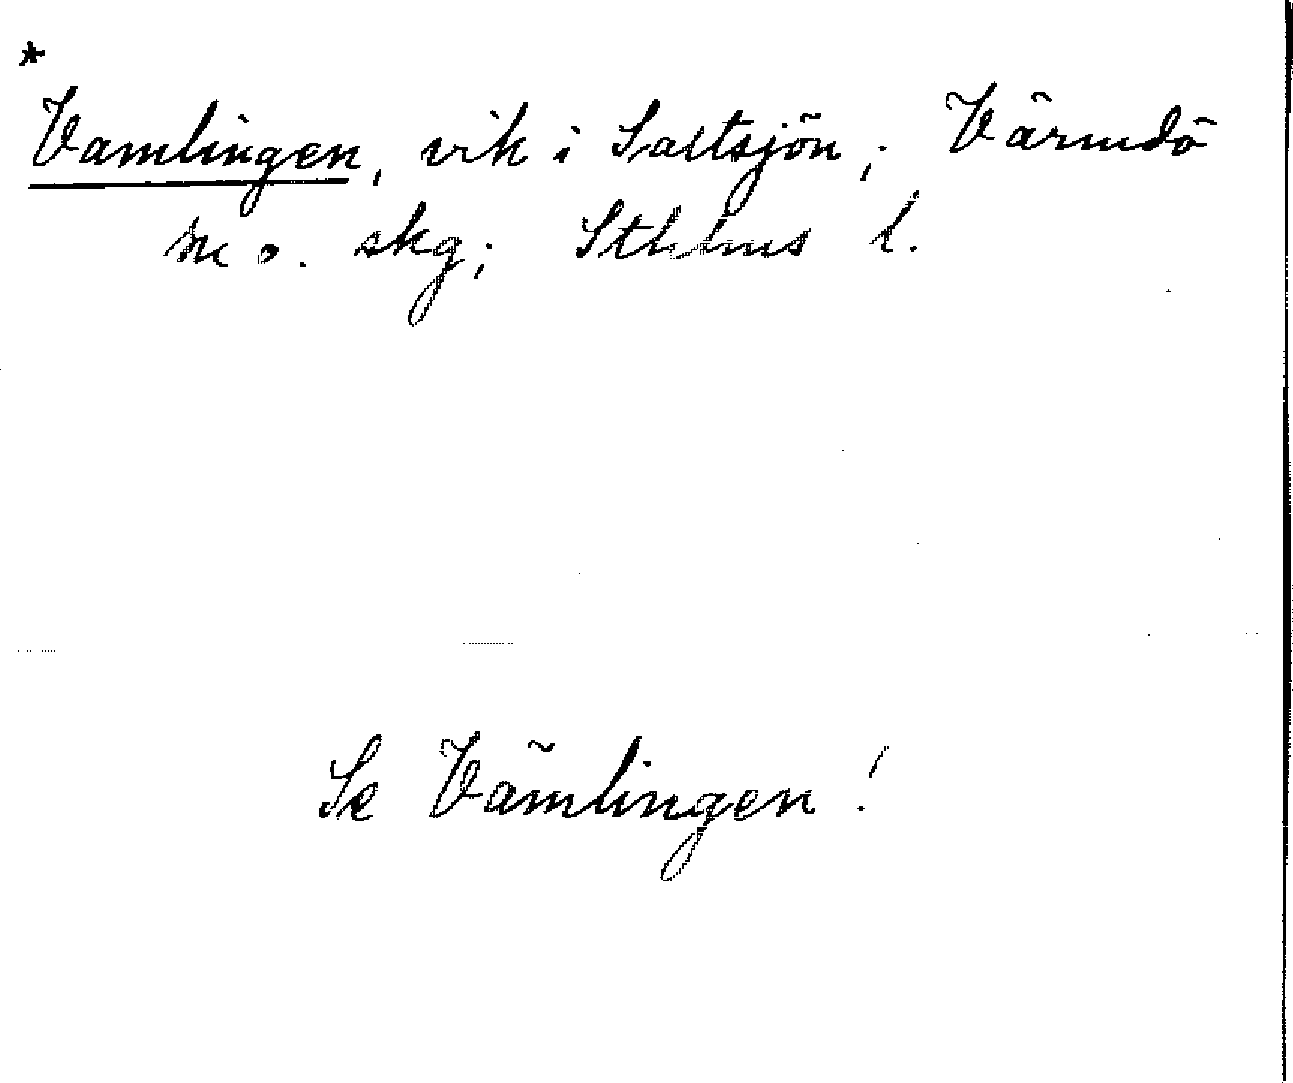 *
Vamlingen, vik i Saltsjön; Värmdö
sn o. skg; Sthlms l.
Se Vämlingen!